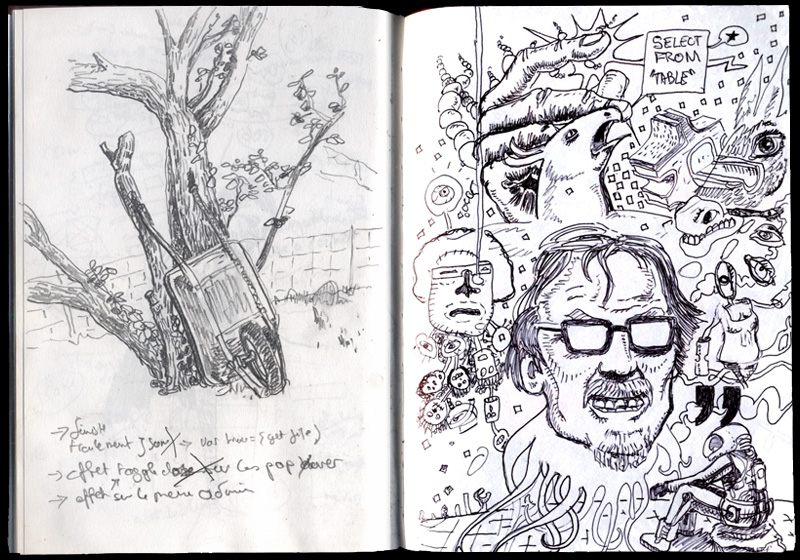 → finir
traitement Json → var {get file}
→ effet toggle sur les pop over
→ effet sur le menu admin
SELECT
FROM
"TABLE"